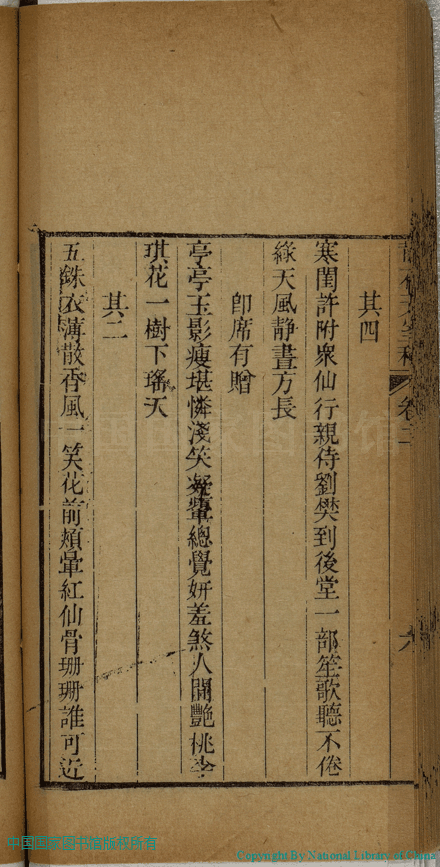 其四
寒閨許附衆仙行親侍劉樊到後堂一部笙歌聽不倦
綠天風静晝方長
卽席有贈
亭亭玉影瘦堪憐淺笑凝顰總覺妍羞煞人間艷桃李
琪花一樹下瑤天
其二
五銖衣薄散香風一笑花前頰暈紅仙骨珊珊誰可近
卷二
六
中国国家图书馆版权所有
Copyright By National Library of China